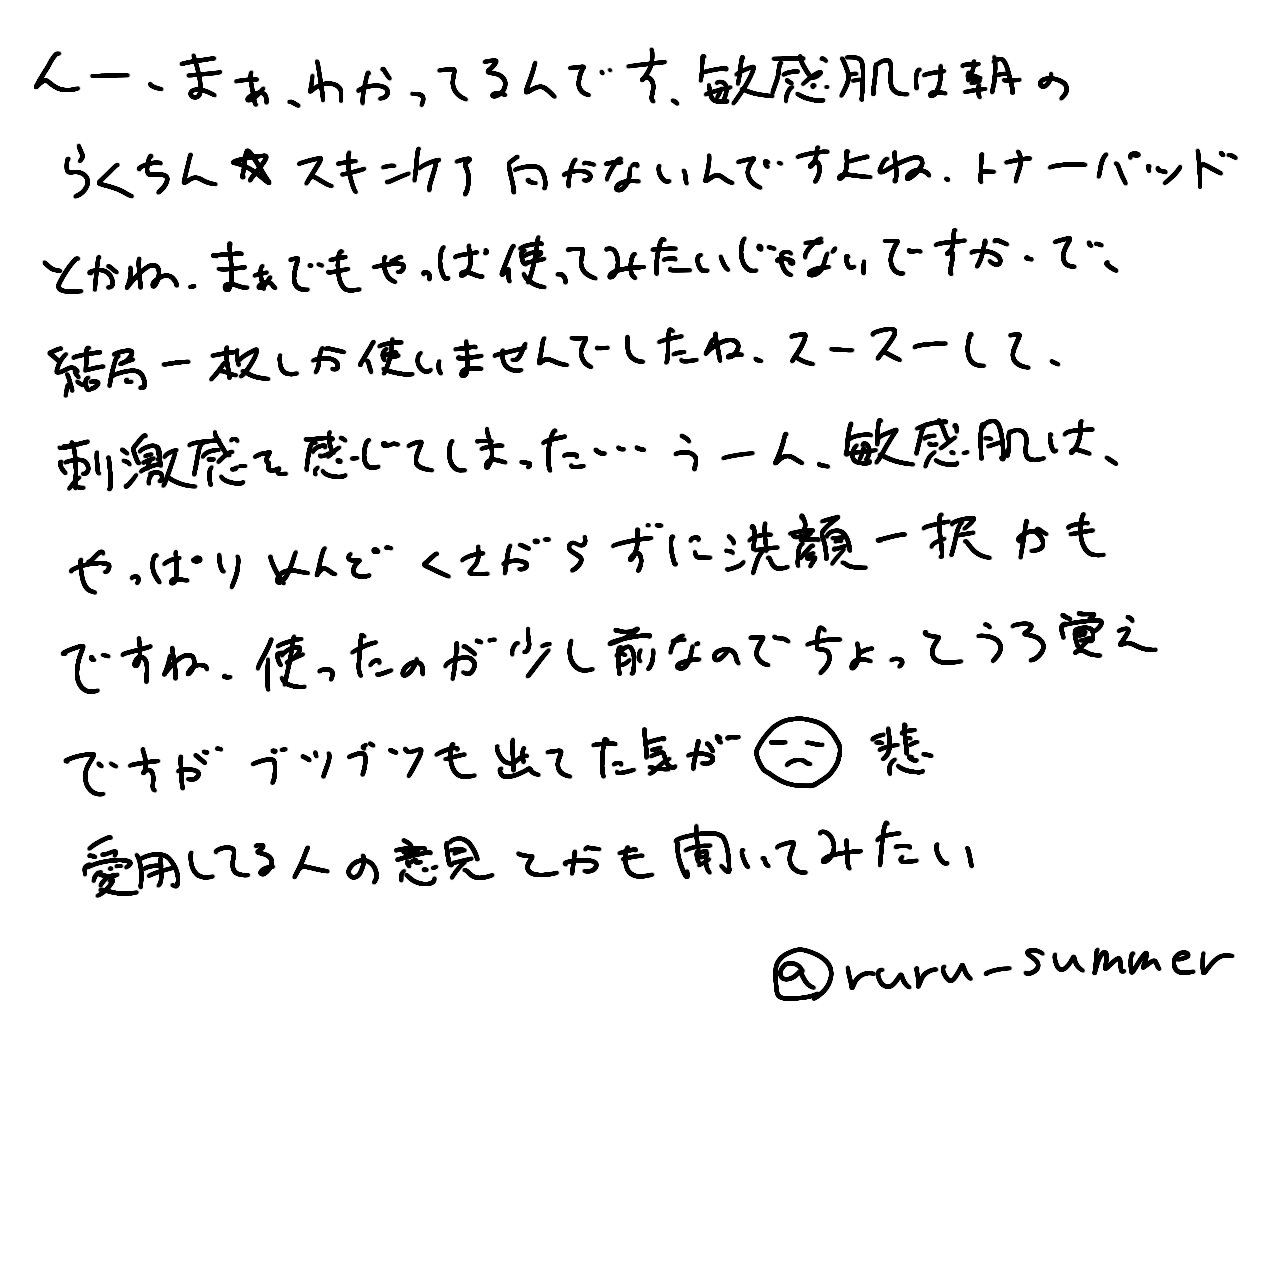 んー、まぁ、わかってるんです、敏感肌は朝の
らくちん☆スキンケア向かないんですよね.トナーパッド
とかね.まぁでもやっぱ使ってみたいじゃないですか.で、
結局一枚しか使いませんでしたね.スースーして、
刺激感を感じてしまった…うーん、敏感肌は、
やっぱりめんどくさがらずに洗顔一択かも
ですね.使ったのが少し前なのでちょっとうろ覚え
ですがブツブツも出てた気が 悲
愛用してる人の意見とかも聞いてみたい
@ruru_summer